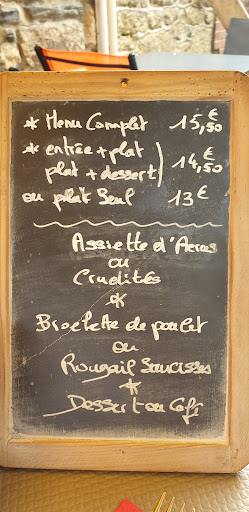 * Menu Complet 15,50€
* entrée + plat
plat + dessert) 14,50€
ou plat Seul 13€
Assiette d'Acras
ou
Crudités
*
Brochette de poulet
ou
Rougail Saucisses
*
Dessert ou Café